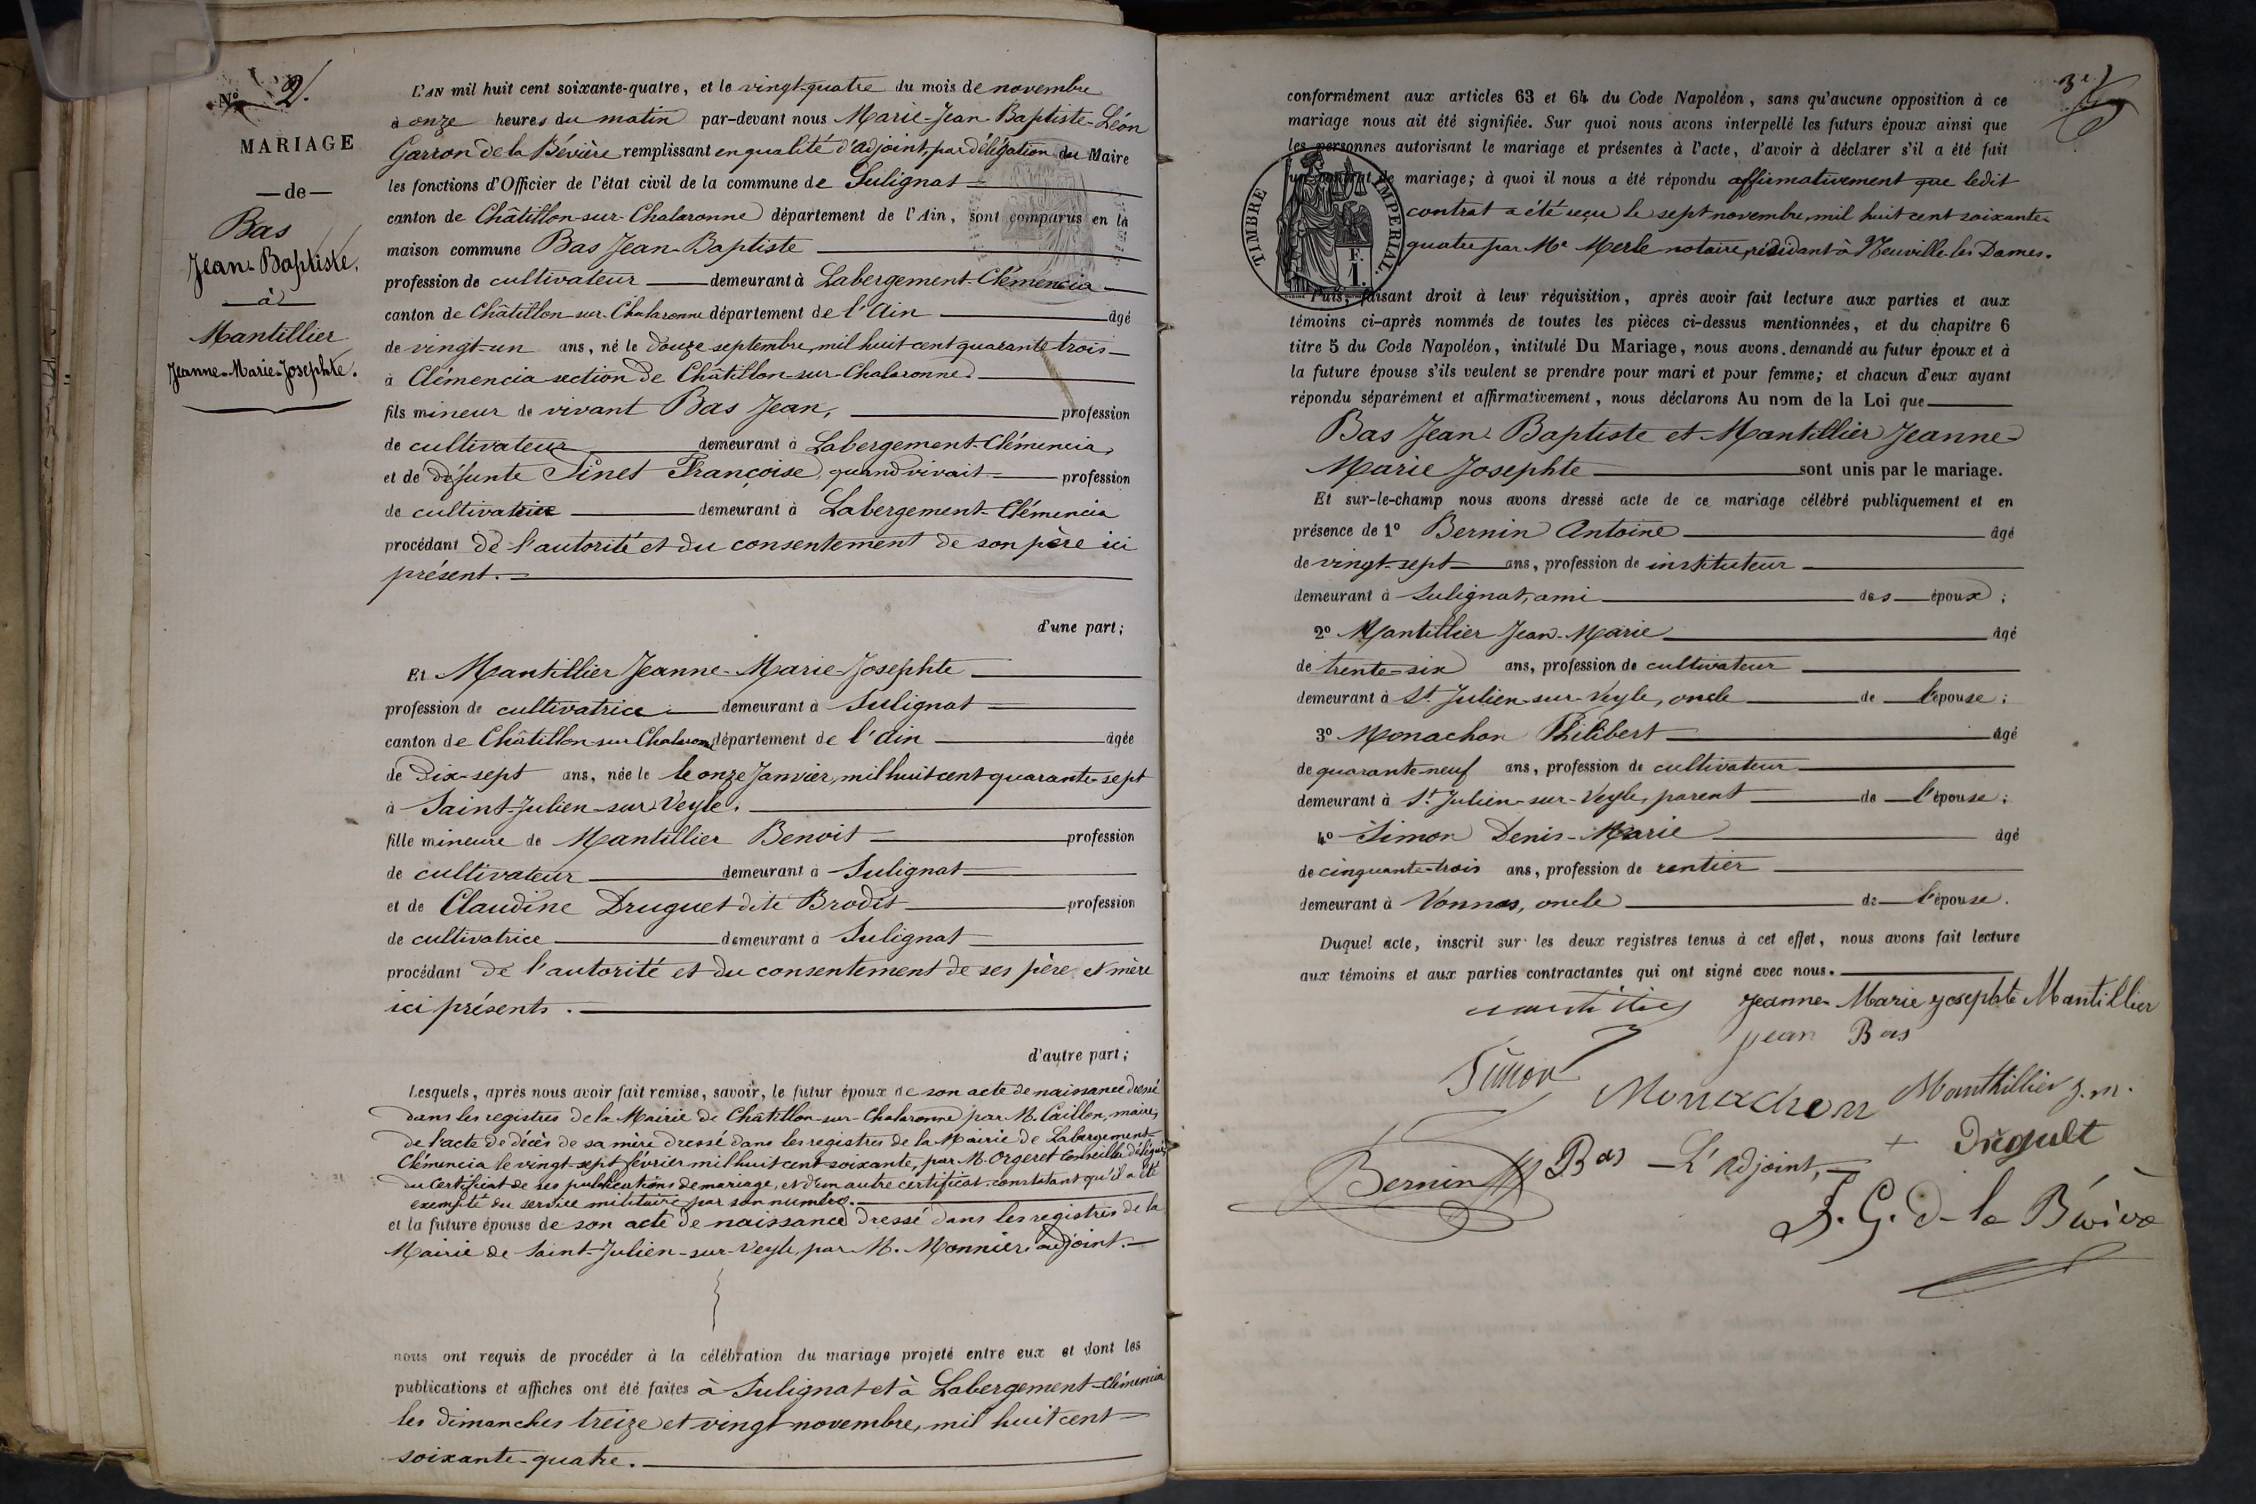 N° 2.
MARIAGE
— de —
Bas
Jean-Baptiste.
— à —
Mantillier
Jeanne-Marie-Josephte.
L'AN mil huit cent soixante-quatre, et le vingt-quatre du mois de novembre
à onze heures du matin par-devant nous Marie-Jean-Baptiste-Léon
Garron de la Bévière remplissant en qualité d'adjoint, par délégation du Maire
les fonctions d'Officier de l'état civil de la commune de Sulignat
canton de Châtillon-sur-Chalaronne département de l'Ain, sont comparus en la
maison commune Bas Jean-Baptiste
profession de cultivateur demeurant à Labergement-Clémencia
canton de Châtillon-sur-Chalaronne département de l'Ain âgé
de vingt-un ans, né le douze septembre, mil huit cent quarante trois
à Clémencia section de Châtillon-sur-Chalaronne.
fils mineur de vivant Bas Jean, profession
de cultivateur demeurant à Labergement-Clémencia,
et de défunte Sinet Françoise, quand vivait profession
de cultivatrice demeurant à Labergement-Clémencia
procédant de l'autorité et du consentement de son père ici
présent.
d'une part;
Et Mantillier Jeanne-Marie-Josephte
profession de cultivatrice demeurant à Sulignat
canton de Châtillon-sur-Chalaronne département de l'Ain âgée
de Dix-sept ans, née le le onze Janvier, mil huit cent quarante-sept
à Saint-Julien-sur-Veyle.
fille mineure de Mantillier Benoit profession
de cultivateur demeurant à Sulignat
et de Claudine Druguet dite Brodet profession
de cultivatrice demeurant à Sulignat
procédant de l'autorité et du consentement de ses père et mère
ici présents.
d'autre part;
Lesquels, après nous avoir fait remise, savoir, le futur époux de son acte de naissance dressé
dans les registres de la Mairie de Châtillon-sur-Chalaronne par M. Caillon, maire,
de l'acte de décès de sa mère dressé dans les registres de la Mairie de Labergement-
Clémencia le vingt-sept février mil huit cent soixante, par M. Orgeret Conseiller délégué,
du certificat de ses publications de mariage, et d'un autre certificat constatant qu'il a été
exempté du service militaire par son numéro.
et la future épouse de son acte de naissance dressé dans les registres de la
Mairie de Saint-Julien-sur-Veyle, par M. Monnier, adjoint.
nous ont requis de procéder à la célébration du mariage projeté entre eux et dont les
publications et affiches ont été faites à Sulignat et à Labergement-Clémencia
les dimanches treize et vingt novembre, mil huit cent
soixante-quatre.
3e
conformément aux articles 63 et 64 du Code Napoléon, sans qu'aucune opposition à ce
mariage nous ait été signifiée. Sur quoi nous avons interpellé les futurs époux ainsi que
les personnes autorisant le mariage et présentes à l'acte, d'avoir à déclarer s'il a été fait
un contrat de mariage; à quoi il nous a été répondu affirmativement que ledit
contrat a été reçu le sept novembre, mil huit cent soixante-
quatre par Me Merle notaire, résidant à Neuville-les-Dames.
TIMBRE IMPERIAL.
F.
1.
Puis, faisant droit à leur réquisition, après avoir fait lecture aux parties et aux
témoins ci-après nommés de toutes les pièces ci-dessus mentionnées, et du chapitre 6
titre 5 du Code Napoléon, intitulé Du Mariage, nous avons demandé au futur époux et à
la future épouse s'ils veulent se prendre pour mari et pour femme; et chacun d'eux ayant
répondu séparément et affirmativement, nous déclarons Au nom de la Loi que
Bas Jean-Baptiste et Mantillier Jeanne-
Marie Josephte sont unis par le mariage.
Et sur-le-champ nous avons dressé acte de ce mariage célébré publiquement et en
présence de 1° Bernin Antoine âgé
de vingt-sept ans, profession de instituteur
demeurant à Sulignat, ami des époux;
2° Mantillier Jean-Marie âgé
de trente-six ans, profession de cultivateur
demeurant à St Julien-sur-Veyle, oncle de l'épouse;
3° Monachon Philibert âgé
de quarante-neuf ans, profession de cultivateur
demeurant à St Julien-sur-Veyle, parent de l'épouse;
4° Simon Denis-Marie âgé
de cinquante-trois ans, profession de rentier
demeurant à Vonnas, oncle de l'épouse.
Duquel acte, inscrit sur les deux registres tenus à cet effet, nous avons fait lecture
aux témoins et aux parties contractantes qui ont signé avec nous.
Jeanne-Marie Josephte Mantillier
jean Bas
Simon
Monachon Manthillier j.m.
Bernin Bas L'adjoint, Druguet
F. G. de la Bévière